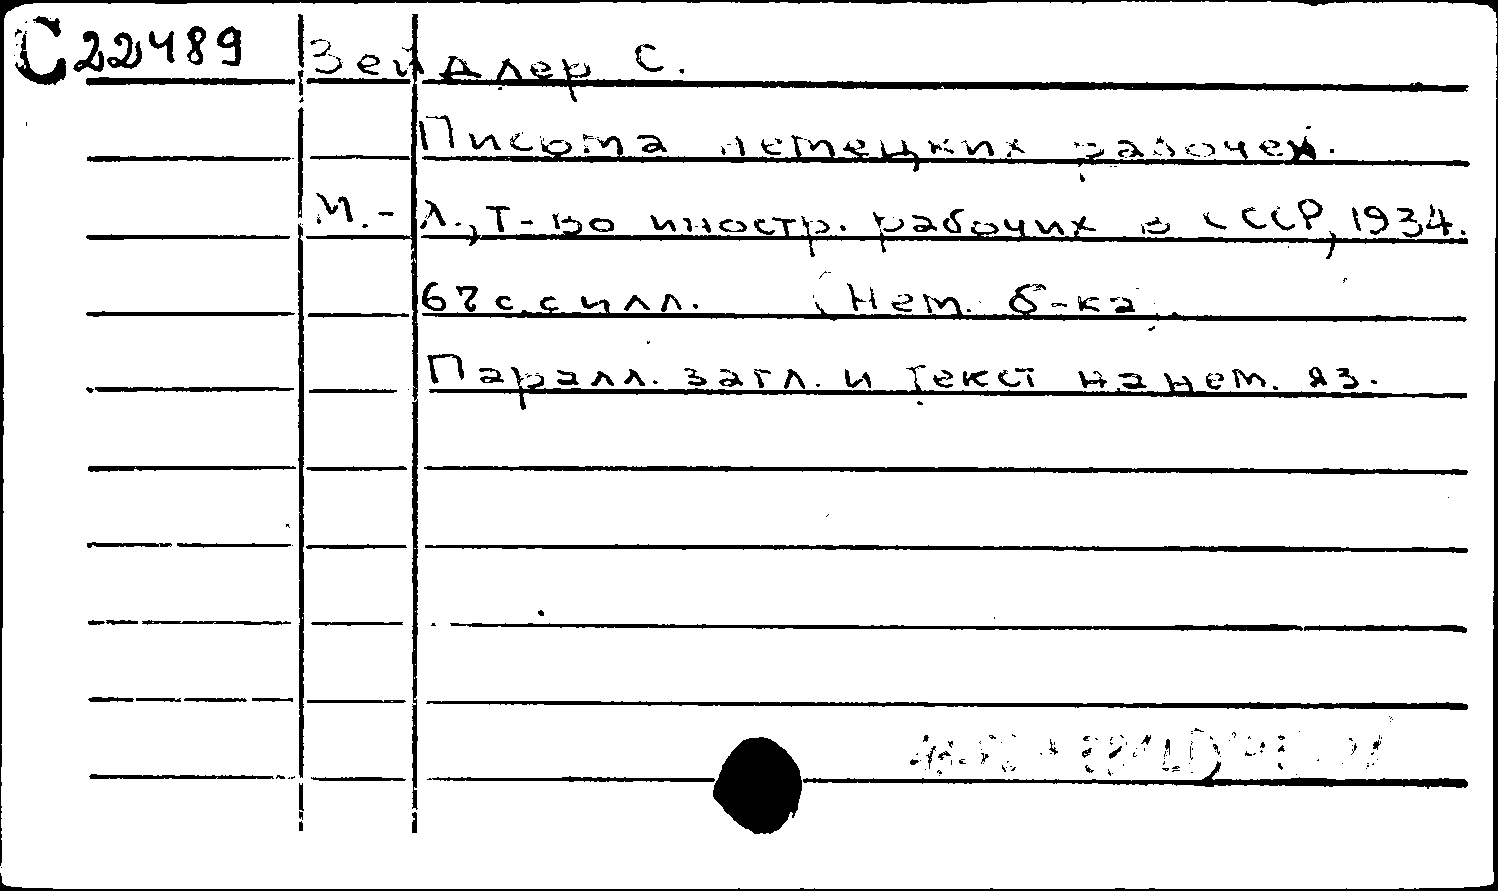 С22489 Зейдлер С.
Письма немецких рабочех.
М.-Л., Т-во иностр. рабочих в СССР, 1934.
67 с. с илл. (Нем. б-ка).
Паралл. загл. и текст на нем. яз.